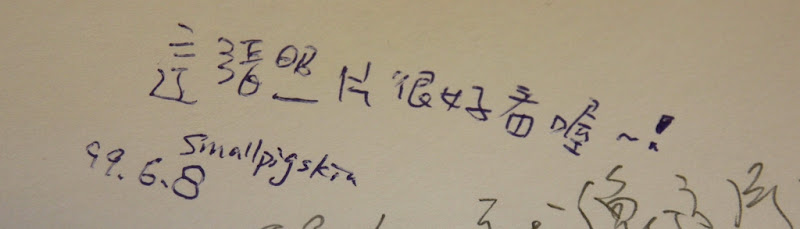 這張照片很好看喔~!
99.6.8 smallpigskin